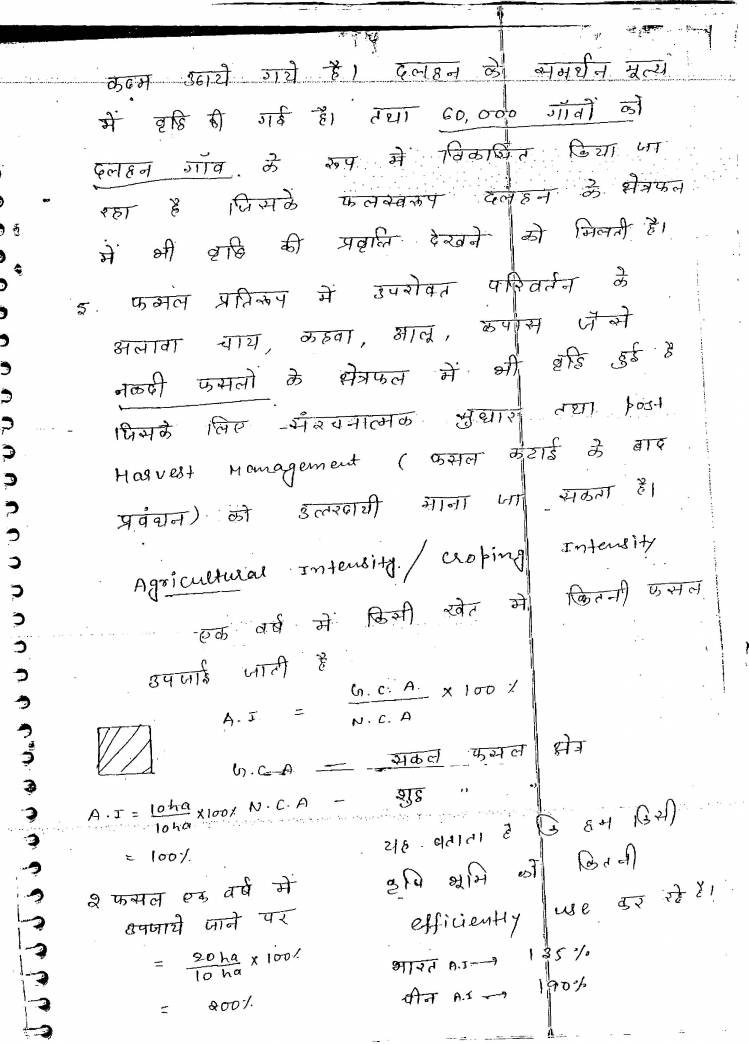 कदम उठाये गये है। दलहन के समर्थन मूल्य
में वृद्धि की गई है। तथा 60,000 गाँवों को
दलहन गाँव के रूप में विकसित किया जा
रहा है जिसके फलस्वरूप दलहन के क्षेत्रफल
में भी वृद्धि की प्रवृत्ति देखने को मिलती है।
5. फसल प्रतिरूप में उपरोक्त परिवर्तन के
अलावा चाय, कहवा, आलू, कपास जैसे
नकदी फसलों के क्षेत्रफल में भी वृद्धि हुई है
जिसके लिए संरचनात्मक सुधार तथा post
Harvest Management ( फसल कटाई के बाद
प्रबंधन) को उत्तरदायी माना जा सकता है।
Agricultural Intensity / Croping Intensity
एक वर्ष में किसी खेत में कितनी फसल
उपजाई जाती है
A.I = G.C.A. / N.C.A × 100 %
G.C.A = सकल फसल क्षेत्र
N.C.A - शुद्ध " "
A.I = 10ha / 10ha × 100%
= 100%
2 फसल एक वर्ष में
उपजाये जाने पर
= 20 ha / 10 ha × 100%
= 200%
यह बताता है कि हम किसी
कृषि भूमि को कितनी
efficiently use कर रहे हैं।
भारत A.I → 135%
चीन A.I → 190%